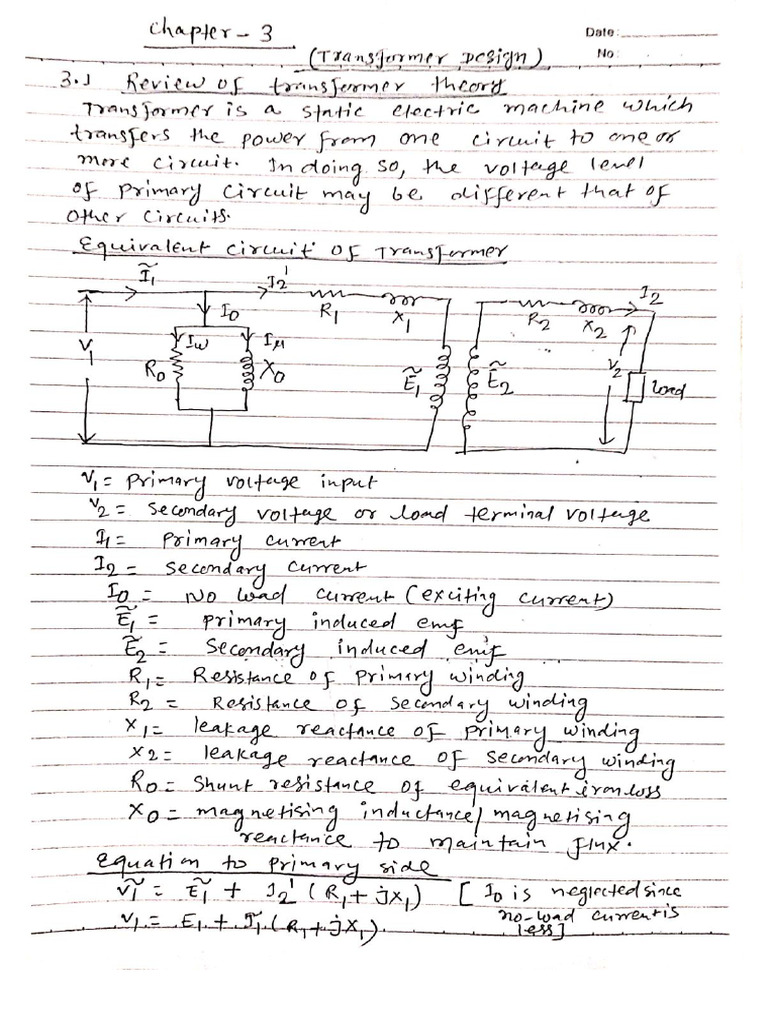 Chapter - 3
Date:
No:
(Transformer Design)
3.1 Review of transformer theory
Transformer is a static electric machine which
transfers the power from one circuit to one or
more circuit. In doing so, the voltage level
of primary circuit may be different that of
other circuits.
Equivalent circuit of Transformer
Ĩ₁ I₂' R₁ X₁ R₂ X₂ I₂
I₀
V₁ Iω Iμ R₀ X₀ Ẽ₁ Ẽ₂ V₂ load
V₁ = primary voltage input
V₂ = Secondary voltage or load terminal voltage
I₁ = Primary current
I₂ = Secondary current
I₀ = No load current (exciting current)
Ẽ₁ = primary induced emf
Ẽ₂ = Secondary induced emf
R₁ = Resistance of primary winding
R₂ = Resistance of secondary winding
X₁ = leakage reactance of primary winding
X₂ = leakage reactance of secondary winding
R₀ = Shunt resistance of equivalent iron loss
X₀ = magnetising inductance/magnetising
reactance to maintain flux.
Equation to primary side
Ṽ₁ = Ẽ₁ + I₂' (R₁ + jX₁) [I₀ is neglected since
no-load current is
less]
V₁ = E₁ + Ĩ₁ (R₁ + jX₁)